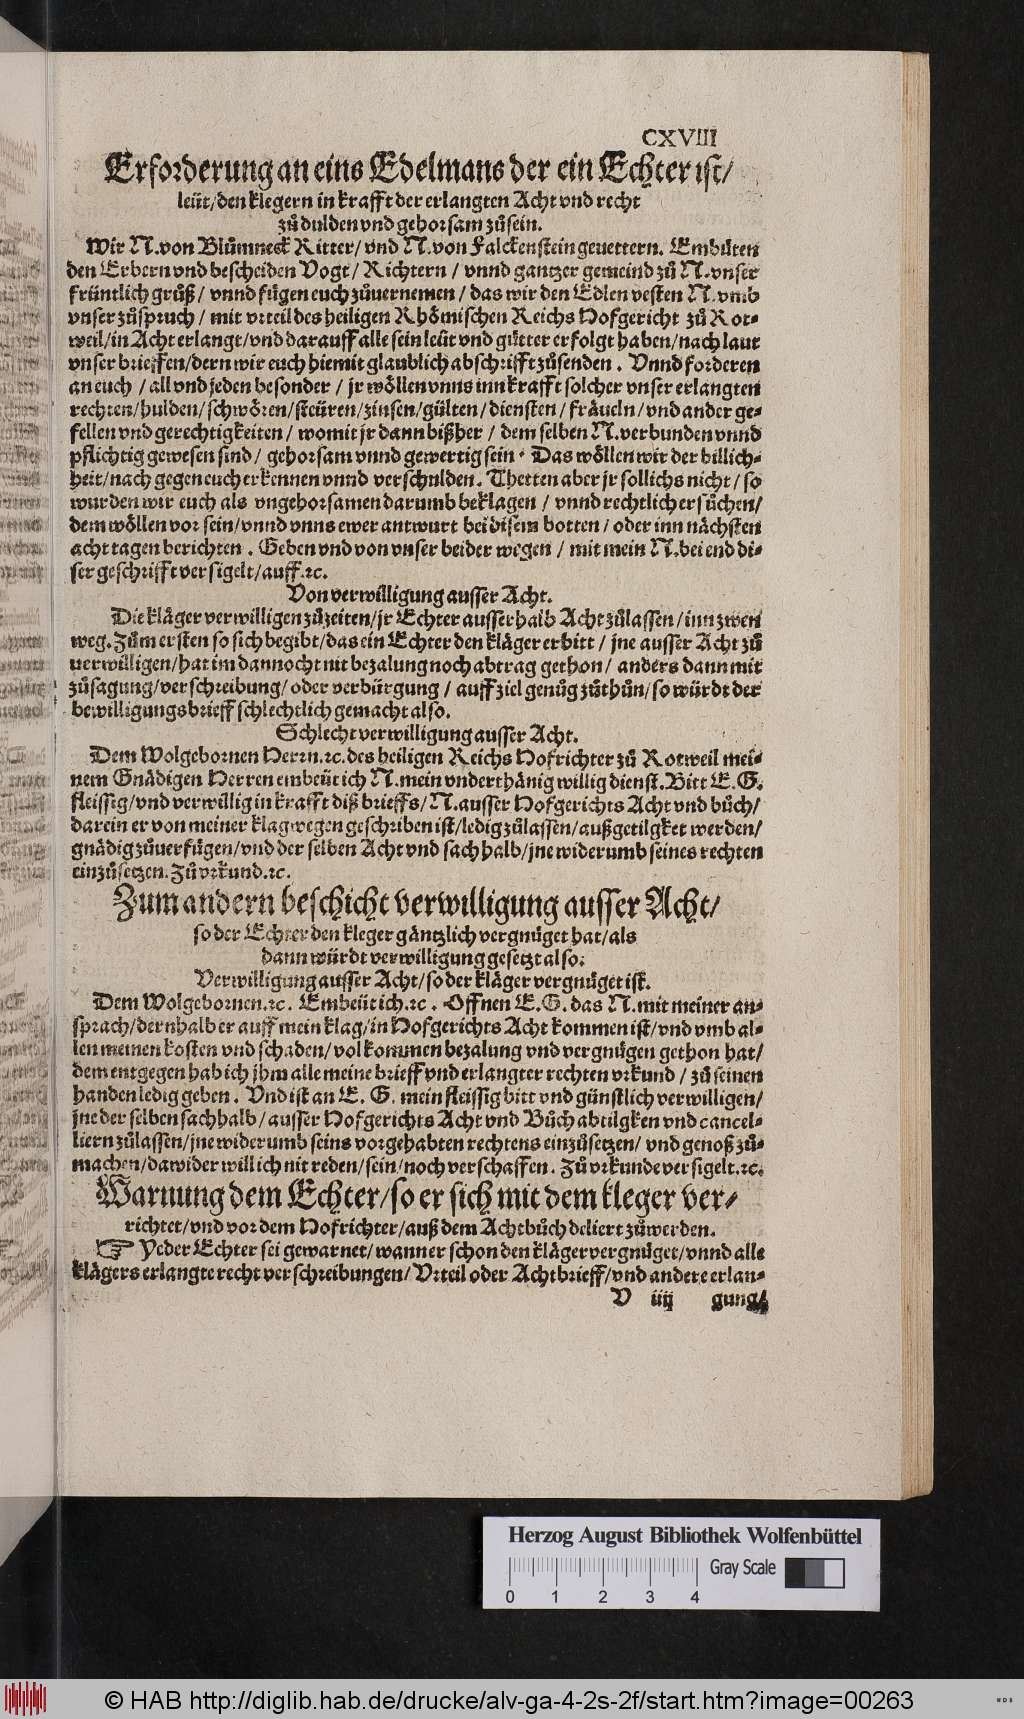 CXVIII
Erforderung an eins Edelmans der ein Echter ist/
leüt/den klegern in krafft der erlangten Acht vnd recht
zů dulden vnd gehorsam zů sein.
Wir N. von Blůmneck Ritter/ vnd N. von Falckenstein geuettern. Embüten
den Erbern vnd bescheiden Vogt/ Richtern / vnnd gantzer gemeind zů N. vnser
früntlich grůß/ vnnd fügen euch zůuernemen / das wir den Edlen vesten N. vmb
vnser zůspruch/ mit vrteil des heiligen Rhömischen Reichs Hofgericht zů Rot-
weil/in Acht erlangt/vnd darauff alle sein leüt vnd gütter erfolgt haben/nach laut
vnser brieffen/dern wir euch hiemit glaublich abschrifft zůsenden . Vnnd forderen
an euch / all vnd jeden besonder / jr wöllen vnns inn krafft solcher vnser erlangten
rechten/hulden/schwören/steüren/zinsen/gülten/diensten/fräueln/vnd ander ge-
fellen vnd gerechtigkeiten/ womit jr dann bißher / dem selben N. verbunden vnnd
pflichtig gewesen sind/ gehorsam vnnd gewertig sein. Das wöllen wir der billich-
heit/nach gegen euch erkennen vnnd verschulden. Thetten aber jr sollichs nicht/ so
wurden wir euch als vngehorsamen darumb beklagen / vnnd rechtlich ersůchen/
dem wöllen vor sein/vnnd vnns ewer antwurt bei disem botten/ oder inn nächsten
acht tagen berichten . Geben vnd von vnser beider wegen / mit mein N. bei end di-
ser geschrifft versigelt/auff.ꝛc.
Von verwilligung ausser Acht.
Die kläger verwilligen zůzeiten/jr Echter ausserhalb Acht zůlassen/inn zwen
weg. Zům ersten so sich begibt/das ein Echter den kläger erbitt / jne ausser Acht zů
uerwilligen/hat im dannocht nit bezalung noch abtrag gethon/ anders dann mit
zůsagung/verschreibung/ oder verbürgung / auff ziel genůg zůthůn/so würdt der
bewilligungs brieff schlechtlich gemacht also.
Schlecht verwilligung ausser Acht.
Dem Wolgebornen Herrn.ꝛc. des heiligen Reichs Hofrichter zů Rotweil mei-
nem Gnädigen Herren embeüt ich N. mein vnderthänig willig dienst. Bitt E. G.
fleissig/vnd verwillig in krafft diß brieffs/N. ausser Hofgerichts Acht vnd bůch/
darein er von meiner klag wegen geschriben ist/ledig zůlassen/außgetilgket werden/
gnädig zůuerfügen/vnd der selben Acht vnd sach halb/jne widerumb seines rechten
einzůsetzen. Zů vrkund.ꝛc.
Zum andern beschicht verwilligung ausser Acht/
so der Echter den kleger gäntzlich vergnüget hat/als
dann würdt verwilligung gesetzt also.
Verwilligung ausser Acht/so der kläger vergnüget ist.
Dem Wolgebornen.ꝛc. Embeüt ich.ꝛc. Offnen E. G. das N. mit meiner an-
sprach/dernhalb er auff mein klag/in Hofgerichts Acht kommen ist/vnd vmb al-
len meinen kosten vnd schaden/volkommen bezalung vnd vergnügen gethon hat/
dem entgegen hab ich jhm alle meine brieff vnd erlangter rechten vrkund / zů seinen
handen ledig geben. Vnd ist an E. G. mein fleissig bitt vnd günstlich verwilligen/
jne der selben sach halb/ausser Hofgerichts Acht vnd Bůch abtilgken vnd cancel-
liern zůlassen/jne widerumb seins vorgehabten rechtens einzůsetzen/ vnd genoß zů-
machen/dawider will ich nit reden/sein/noch verschaffen. Zů vrkunde versigelt.ꝛc.
Warnung dem Echter/so er sich mit dem kleger ver-
richtet/vnd vor dem Hofrichter/auß dem Achtbůch deliert zůwerden.
☞ Yeder Echter sei gewarnet/wann er schon den kläger vergnüget/vnnd alle
klägers erlangte recht verschreibungen/Vrteil oder Achtbrieff/vnd andere erlan-
V iiij gung/
Herzog August Bibliothek Wolfenbüttel
Gray Scale
0 1 2 3 4
© HAB http://diglib.hab.de/drucke/alv-ga-4-2s-2f/start.htm?image=00263